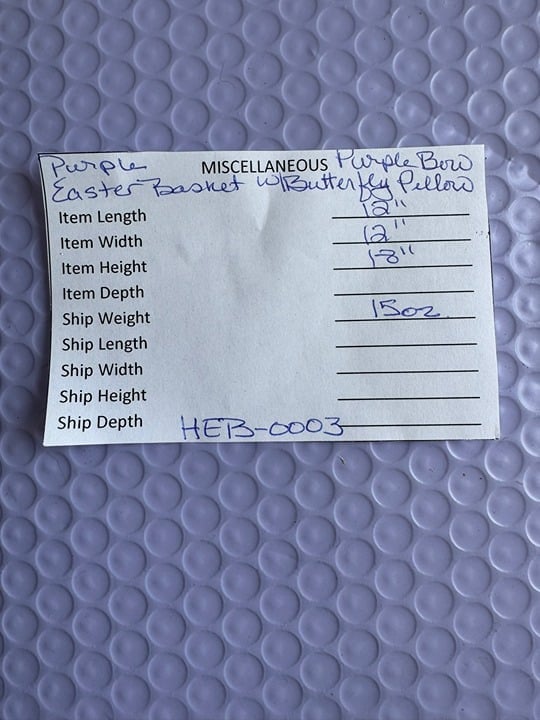 Purple MISCELLANEOUS Purple Bow
Easter Basket w/Butterfly Pillow
Item Length 12"
Item Width 12"
Item Height 18"
Item Depth
Ship Weight 15oz
Ship Length
Ship Width
Ship Height
Ship Depth HEB-0003